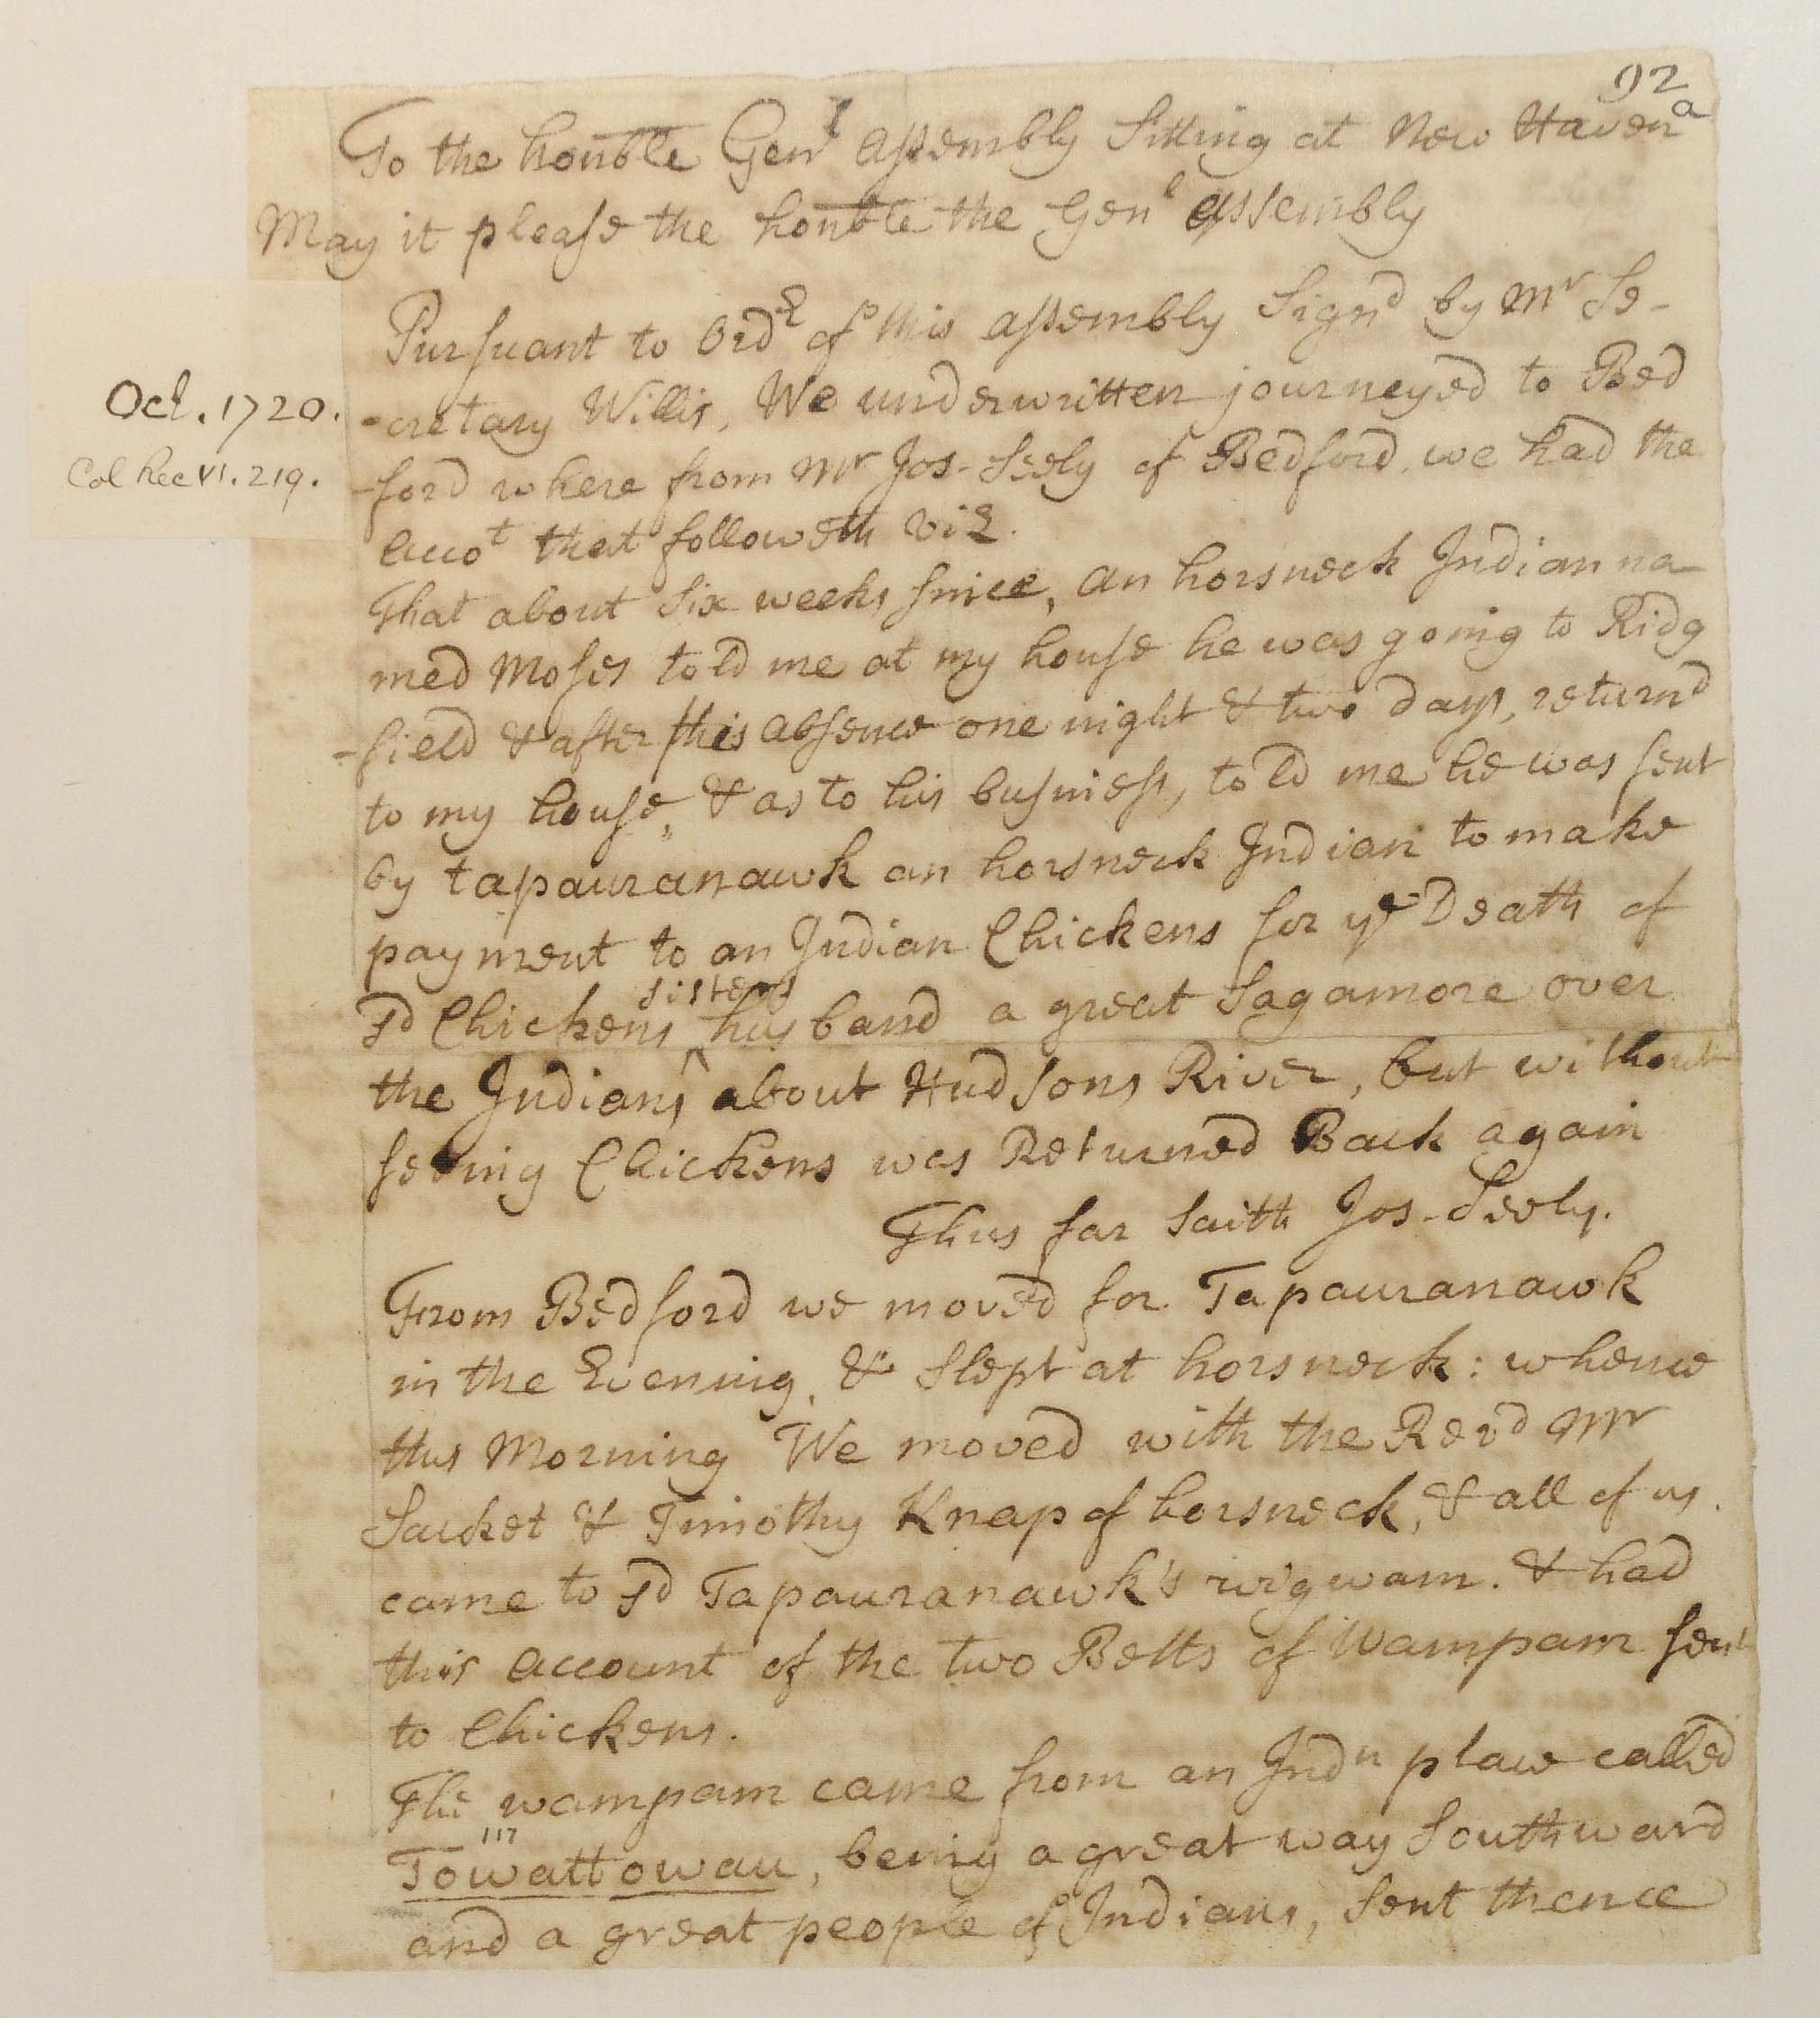 92
a
To the honble Genl Assembly Sitting at New Haven
May it please the honble the Genl Assembly
Pursuant to Ordr of this assembly Signd by Mr Se-
-cretary Willis, We underwritten journeyed to Bed
-ford where from Mr Jos- Seely of Bedford we had the
Accot that followeth viz.
Oct. 1720.
Col Rec VI. 219.
That about Six weeks since, an horsneck Indian na-
med Moses told me at my house he was going to Ridg
-field & after this absence one night & two days, returnd
to my house, & as to his business, told me he was sent
by tapauranawk an horsneck Indian to make
payment to an Indian Chickens for ye Death of
sd Chickens sisters husband a great Sagamore over
the Indians about Hudsons River, but without
seeing Chickens was Returned Back again
Thus far saith Jos- Seely.
From Bedford we moved for Tapauranawk
in the Evening, & Slept at horsneck: whence
this Morning We moved with the Revd Mr
Sacket & Timothy Knap of horsneck, & all of us
came to sd Tapauranawk's wigwam. & had
this account of the two Belts of Wampam sent
to Chickens.
The wampam came from an Indn place called
117
Towattowau, being a great way Southward
and a great people of Indians, Sent thence